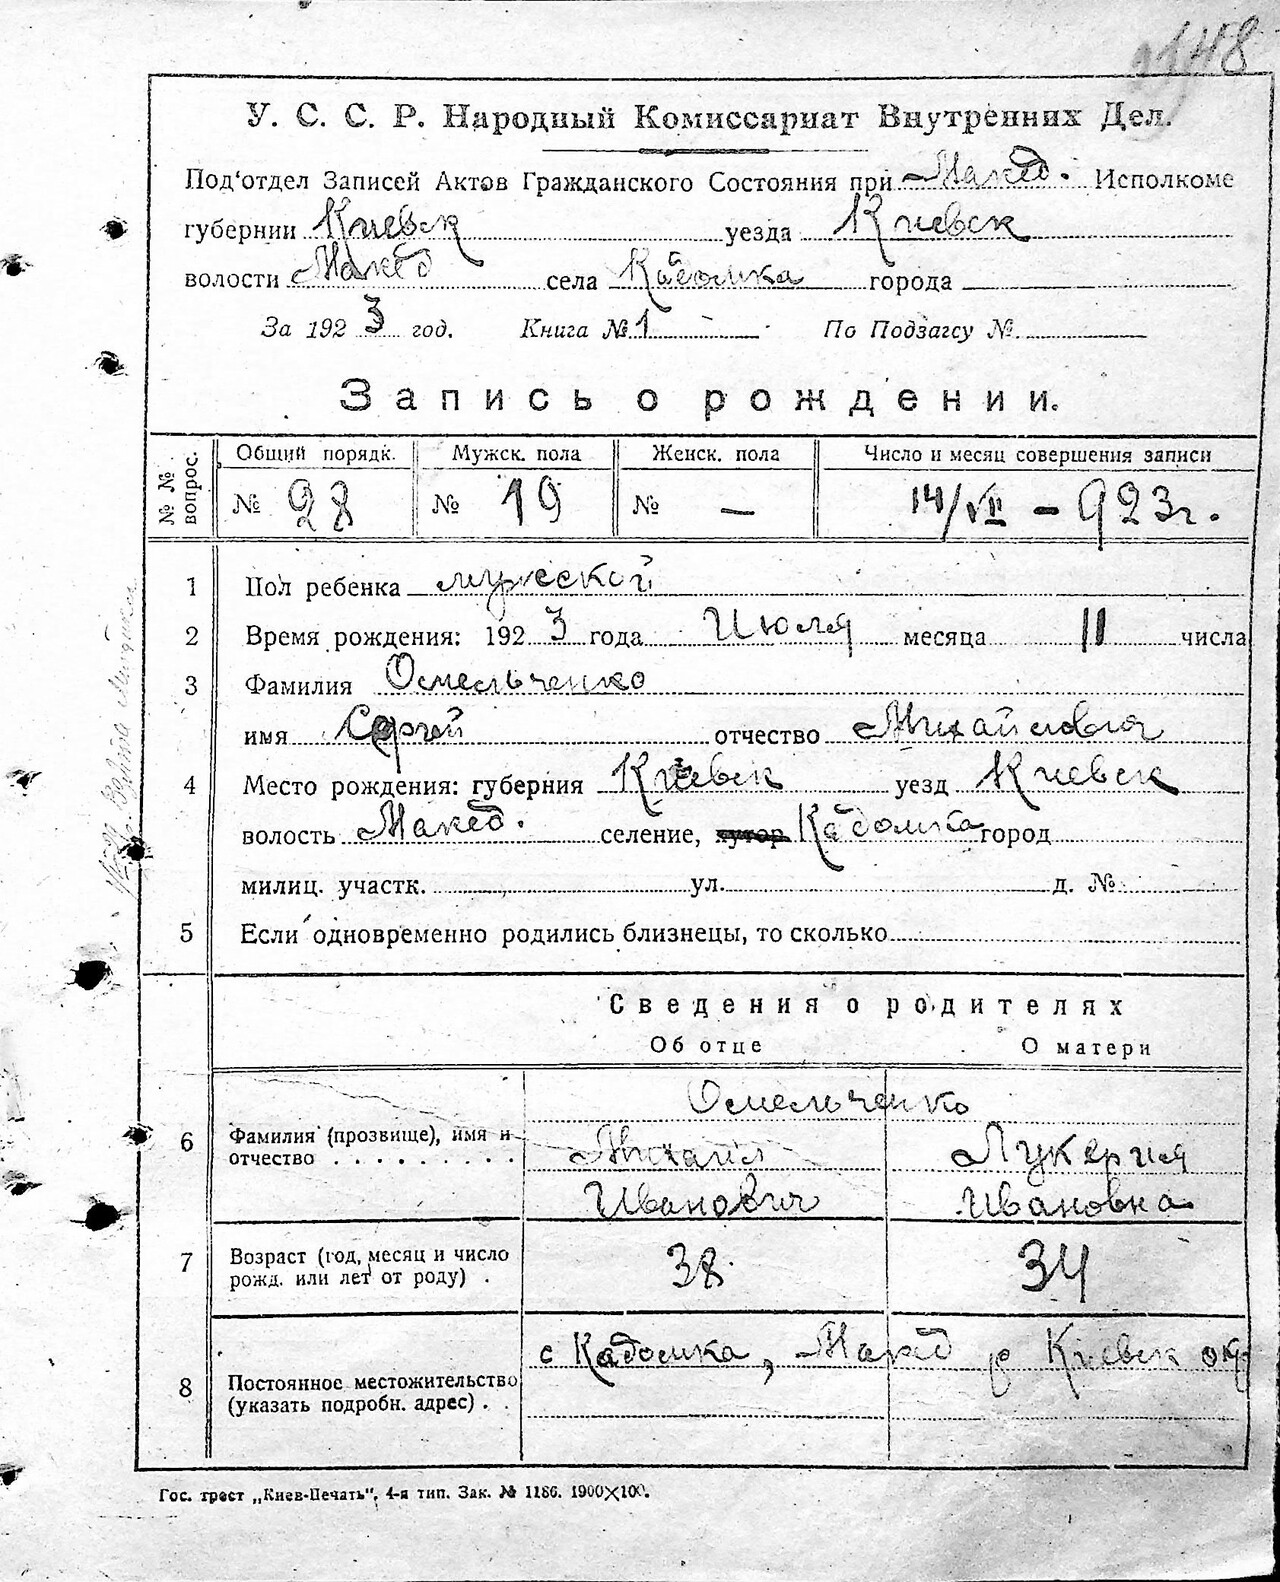 148
У. С. С. Р. Народный Комиссариат Внутренних Дел.
Под'отдел Записей Актов Гражданского Состояния при Макед. Исполкоме
губернии Киевск уезда Киевск
волости Макед села Кадомка города
За 1923 год. Книга № 1 По Подзагсу №
Запись о рождении.
№ № вопрос. Общий порядк. Мужск. пола Женск. пола Число и месяц совершения записи
№ 28 № 19 № — 14/VII - 923г.
1 Пол ребенка мужской
2 Время рождения: 1923 года Июля месяца 11 числа
3 Фамилия Омельченко
имя Сергей отчество Михайлович
4 Место рождения: губерния Киевск уезд Киевск
волость Макед. селение, хутор Кадомка город
милиц. участк. ул. д. №
5 Если одновременно родились близнецы, то сколько
Сведения о родителях
Об отце О матери
Омельченко
6 Фамилия (прозвище), имя и отчество Михаил Лукерия
Иванович Ивановна
7 Возраст (год, месяц и число рожд. или лет от роду) . 38 34
с Кадомка, Макед р Киевск окр
8 Постоянное местожительство (указать подробн. адрес) . .
Гос. трест „Киев-Печать", 4-я тип. Зак. № 1186. 1900×100.